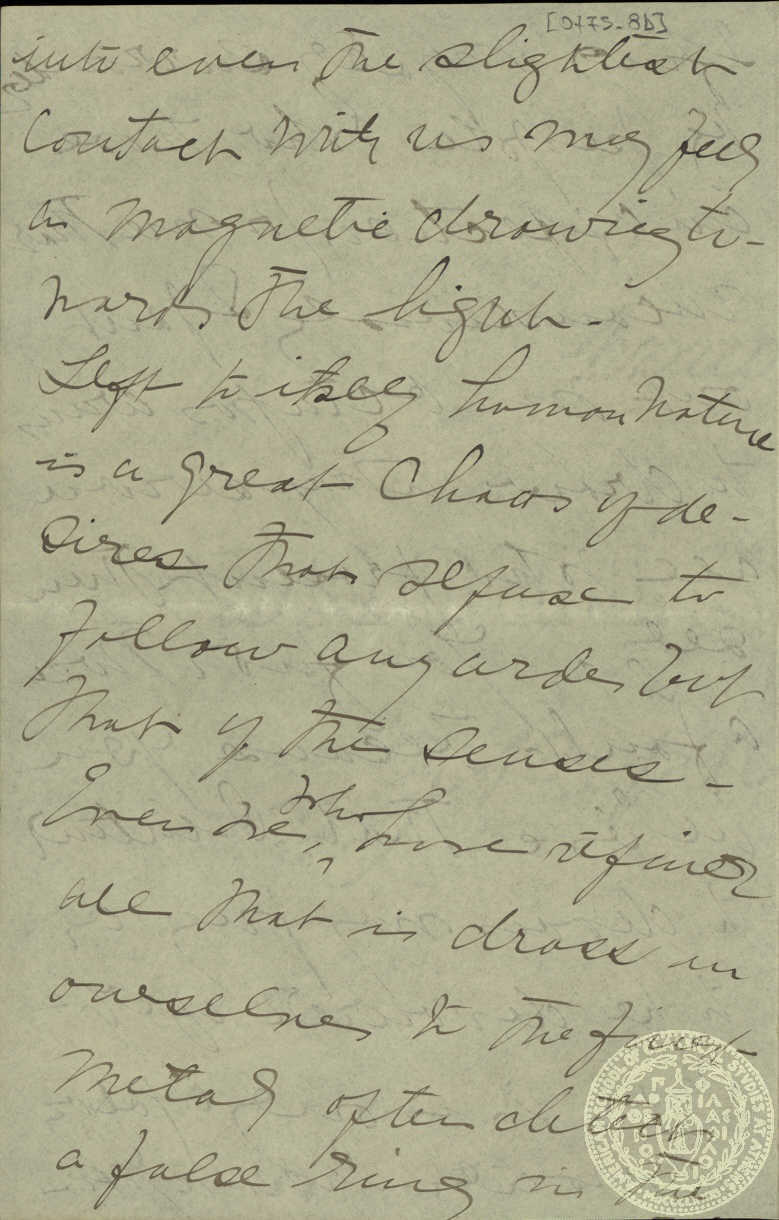 [0175-8b]
into even the slightest
contact with us may feel
a magnetic drawing to-
wards the light -
Left to itself human nature
is a great chaos of de-
sires that refuse to
follow any order but
that of the senses -
Even we, who have refined
all that is dross in
ourselves to the finest
metal often detect
a false ring in the